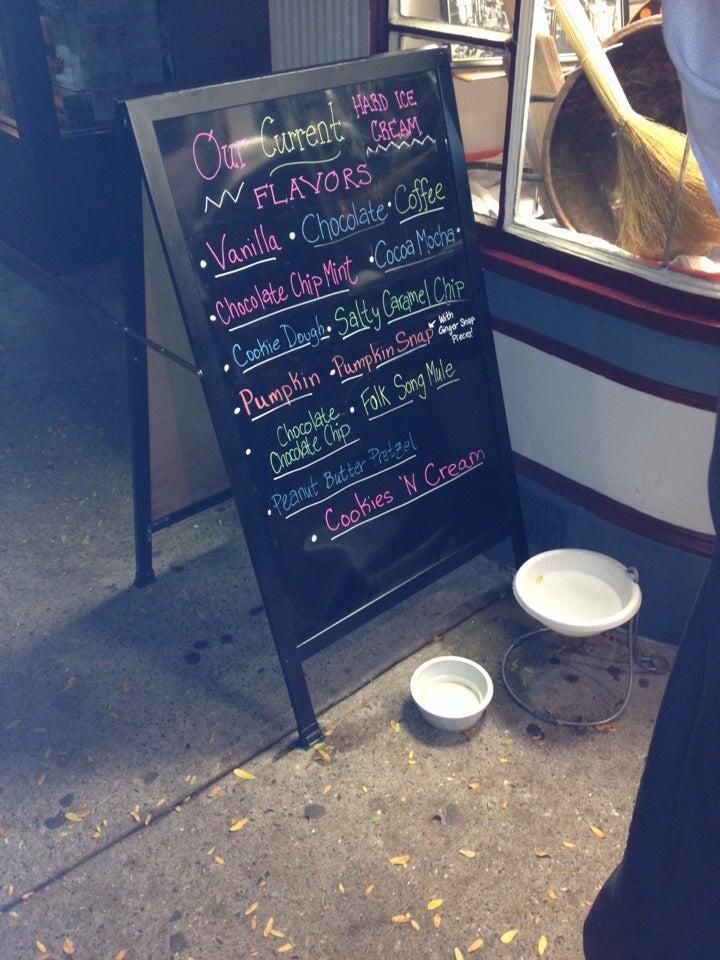 Our Current HARD ICE CREAM
FLAVORS
• Vanilla • Chocolate • Coffee
• Chocolate Chip Mint • Cocoa Mocha
• Cookie Dough • Salty Caramel Chip
• Pumpkin • Pumpkin Snap With Ginger Snap Pieces!
• Chocolate Chocolate Chip • Folk Song Mule
• Peanut Butter Pretzel
• Cookies 'N Cream